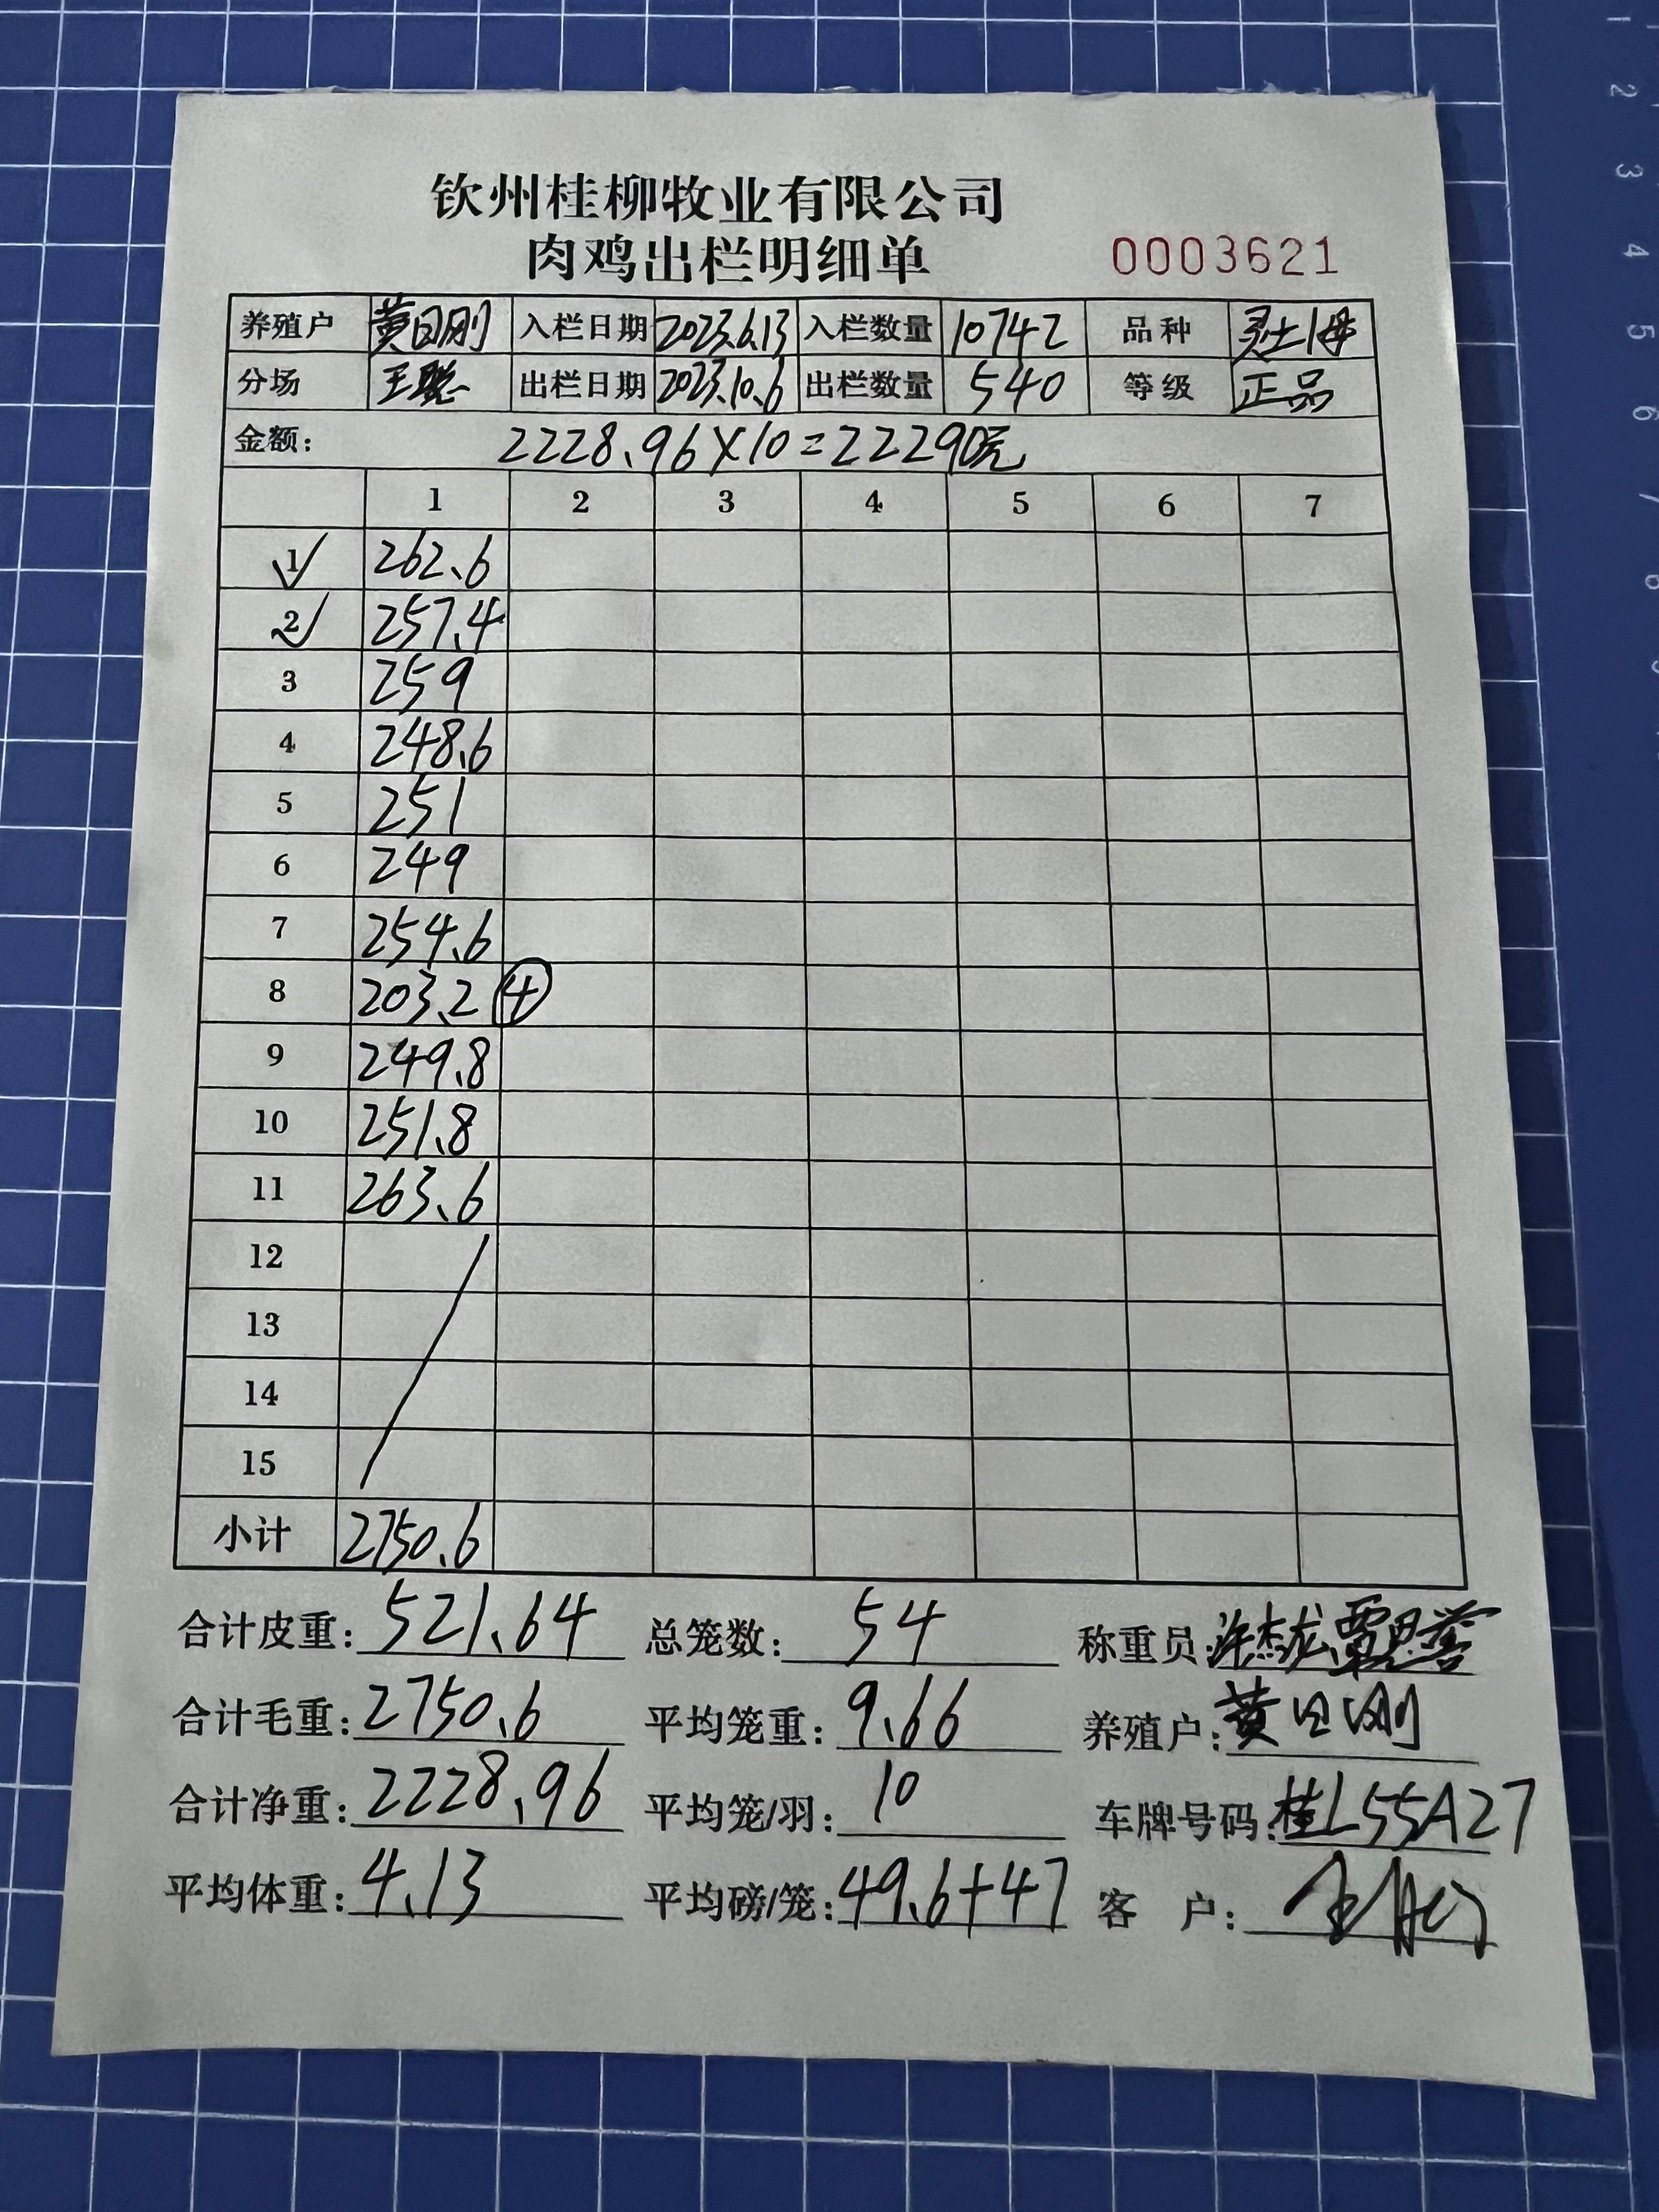 钦州桂柳牧业有限公司
肉鸡出栏明细单 0003621
养殖户 黄日刚 入栏日期 2023.6.13 入栏数量 10742 品种 灵土1母
分场 王聪 出栏日期 2023.10.6 出栏数量 540 等级 正品
金额: 2228.96×10=22290元
1 2 3 4 5 6 7
1 262.6
2 257.4
3 259
4 248.6
5 251
6 249
7 254.6
8 203.2 4
9 249.8
10 251.8
11 263.6
12
13
14
15
小计 2750.6
合计皮重: 521.64 总笼数: 54 称重员:
合计毛重: 2750.6 平均笼重: 9.66 养殖户: 黄日刚
合计净重: 2228.96 平均笼/羽: 10 车牌号码: 桂L55A27
平均体重: 4.13 平均磅/笼: 49.6+47 客户:
1
2
3
4
5
6
7
8